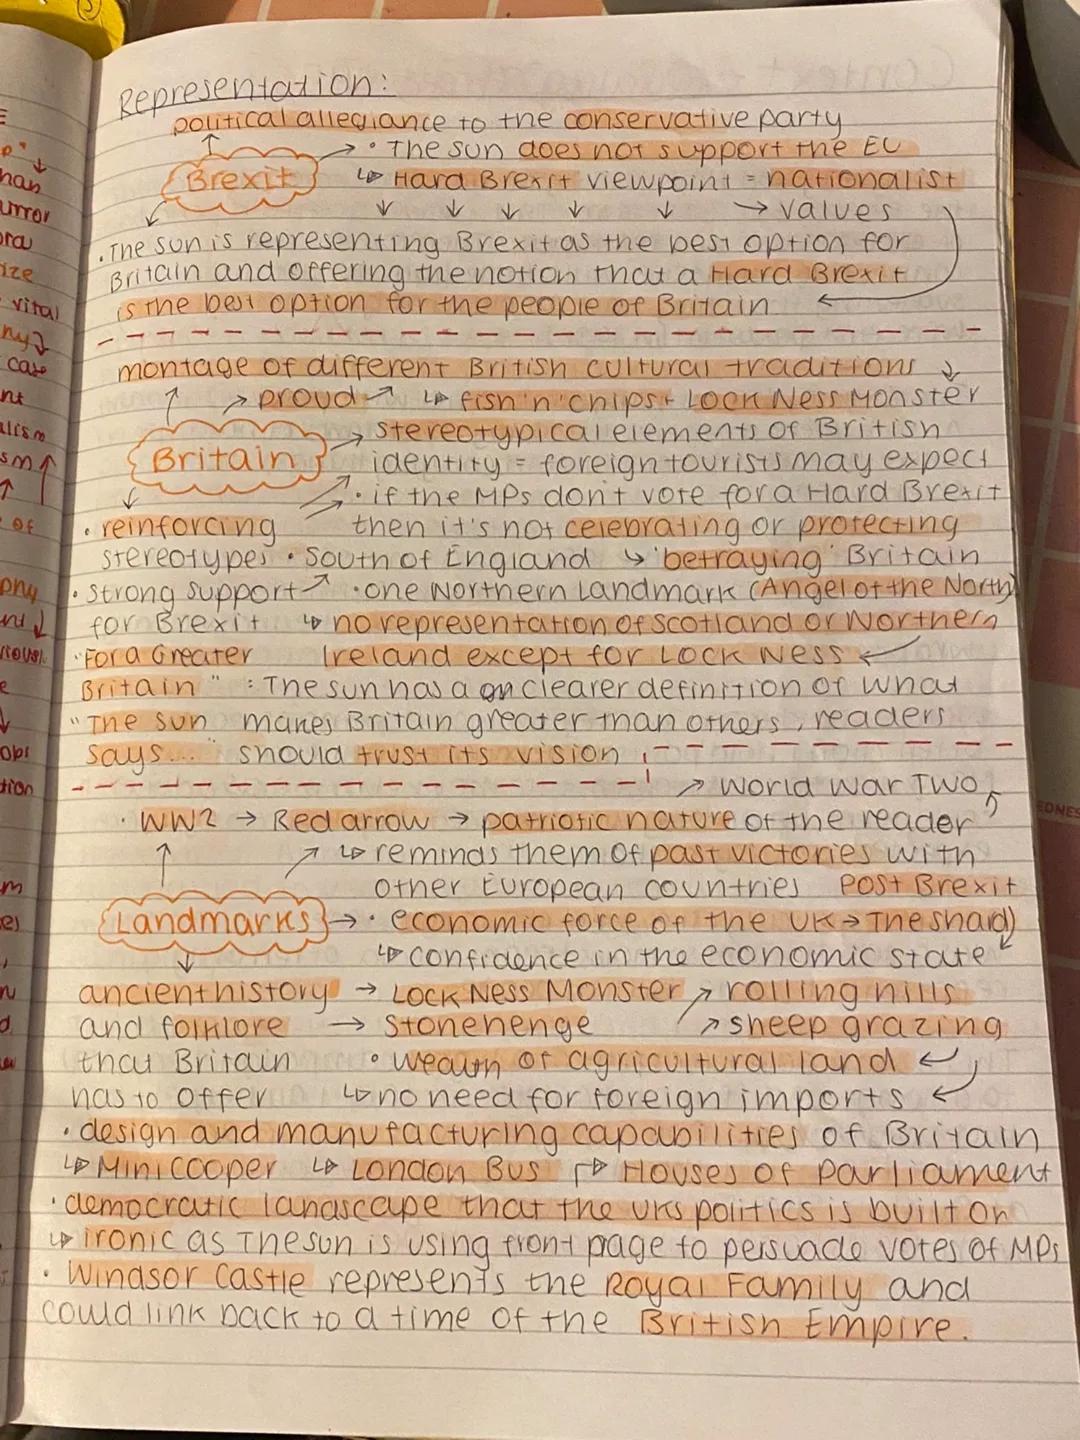 Representation:
political allegiance to the conservative party
Brexit → • The sun does not support the EU
↳ Hard Brexit viewpoint = nationalist
→ values
• The sun is representing Brexit as the best option for
Britain and offering the notion that a Hard Brexit
is the best option for the people of Britain
montage of different British cultural traditions
→ proud ↳ fish 'n' chips + Lock Ness Monster
→ stereotypical elements of British
Britain identity = foreign tourists may expect
• if the MPs don't vote for a Hard Brexit
• reinforcing then it's not celebrating or protecting
stereotypes • South of England ↳ 'betraying' Britain
• Strong support • one Northern Landmark (Angel of the North)
for Brexit ↳ no representation of Scotland or Northern
"For a Greater Ireland except for Lock Ness
Britain" : The sun has a clearer definition of what
"The Sun makes Britain greater than others, readers
says...." should trust its vision
→ World War Two
• WW2 → Red arrow → patriotic nature of the reader
↳ reminds them of past victories with
other European countries Post Brexit
Landmarks → • economic force of the UK → The shard
↳ confidence in the economic state
ancient history → Lock Ness Monster → rolling hills
and folklore → Stonehenge → sheep grazing
that Britain • wealth of agricultural land
has to offer ↳ no need for foreign imports
• design and manufacturing capabilities of Britain
↳ Mini Ccooper ↳ London Bus ↱ Houses of Parliament
• democratic landscape that the UKs politics is built on
↳ ironic as The sun is using front page to persuade votes of MPs
• Windsor Castle represents the Royal Family and
could link back to a time of the British Empire.